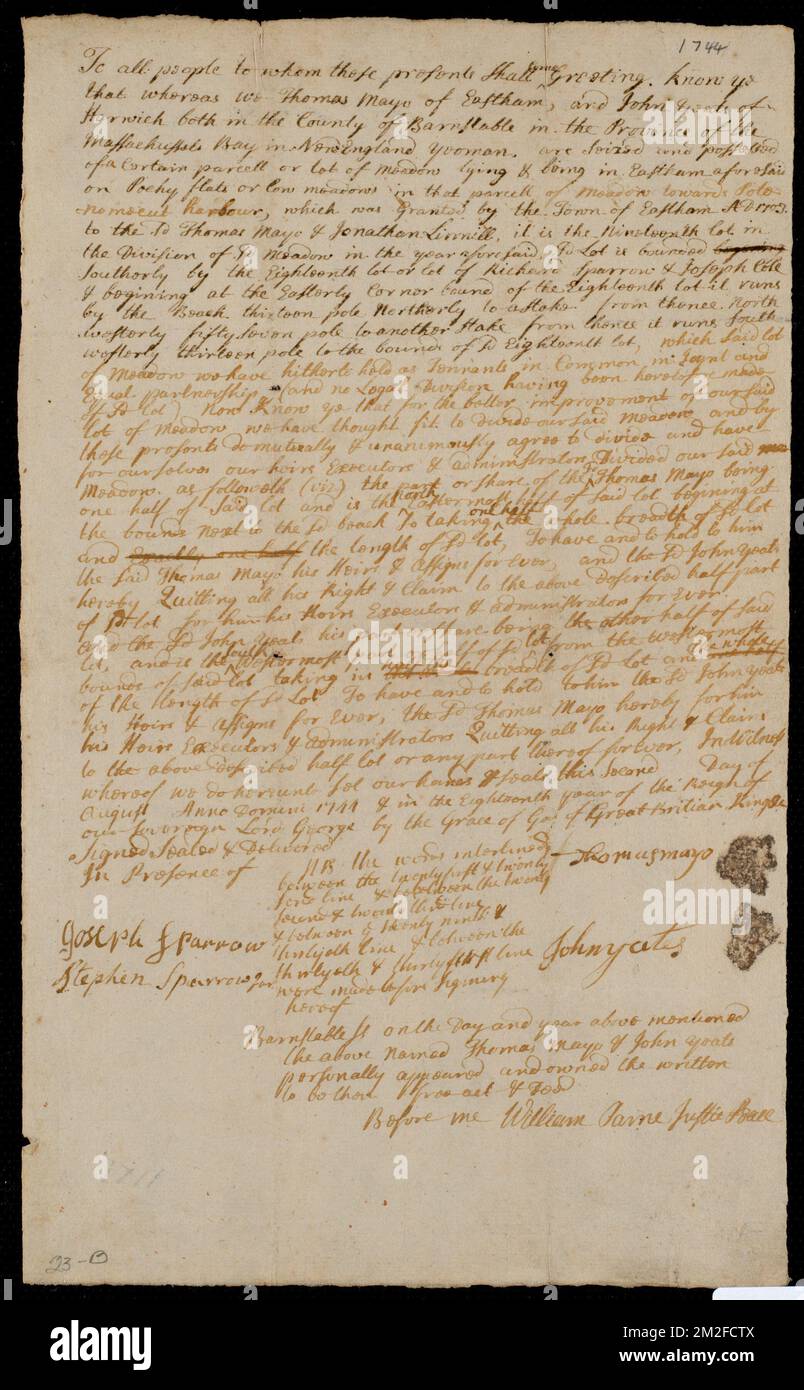 1744
To all people to whom these presents Shall come Greeting. Know ye
that whereas we Thomas Mayo of Eastham, and John Yeats of
Harwich both in the County of Barnstable in the Province of the
Massachussets Bay in New England yeoman. are Seized and possessed
of a Certain parcell or lot of meadow lying & being in Eastham aforesaid
on Pochy flats or low meadows in that parcel of Meadow towards Poto-
nomecut harbour, which was Granted by the Town of Eastham AD 1703
to the sd Thomas Mayo & Jonathan Linnill, it is the Nineteenth lot in
the Division of sd Meadow in the year aforesaid. sd Lot is bounded begining
Southerly by the Eighteenth lot or lot of Richard Sparrow & Joseph Cole
& begining at the Easterly Cornor bound of the Eighteenth lot it runs
by the Beach thirteen pole Northerly to a stake from thence North
westerly fifty seven pole to another Stake from thence it runs South-
westerly thirteen pole to the bounds of sd Eighteenth lot, which said lot
of Meadow we have hitherto held as Tennants in Common in Joynt and
Equal partnership (and no Legal Division having been heretofore made
of sd lot) Now Know ye that for the better improvement of our said
lot of Meadow we have thought fit to divide our said Meadow and by
these presents do mutually & unanimously agree to divide and have
for ourselves our heirs Executors & administrators Divided our said
Meadow as followeth (viz) the part or share of the sd Thomas Mayo being
one half of said lot and is the north Eastermost half of said lot begining at
the bounds next to the sd beach To taking the whole breadth of sd lot
and Exactly one half one half the length of sd lot, To have and to hold to him
the said Thomas Mayo his Heirs & Assigns for Ever, and the sd John Yeats
hereby Quitting all his Right & Claim to the above Described half part
of sd lot for him his Heirs Executors & administrators for Ever.
and the sd John Yeats his part or share being the other half of said
lot, and is the South Westermost half of sd lot from the westermost
bounds of said lot taking in breadth of sd Lot and
of the length of sd Lot To have and to hold to him the sd John Yeats
his Heirs & Assigns for Ever, the sd Thomas Mayo hereby for him
his Heirs Executors & administrators Quitting all his Right & Claim
to the above described half lot or any part thereof for ever, In Witness
whereof we do hereunto Set our hands & seals this Second Day of
August Anno Domini 1744 & in the Eighteenth year of the Reign of
our Sovereign Lord George by the Grace of God of Great Britian King &c
Signed Sealed & Delivered
In Presence of
NB the words interlined
between the twenty first & twenty
second line & between the twenty
second & twenty third line
& between ye twenty ninth &
thirtyeth line & between the
thirtyeth & thirty first line
were made before signing
hereof
Thomas mayo
John yeats
Joseph Sparrow
Stephen Sparrow
Barnstable ss on the Day and year above mentioned
the above named Thomas Mayo & John Yeats
personally appeared and owned the written
to be their free act & Deed
Before me William Paine Justice Peace
23-B
alamy
Image ID: 2M2FCTX
www.alamy.com